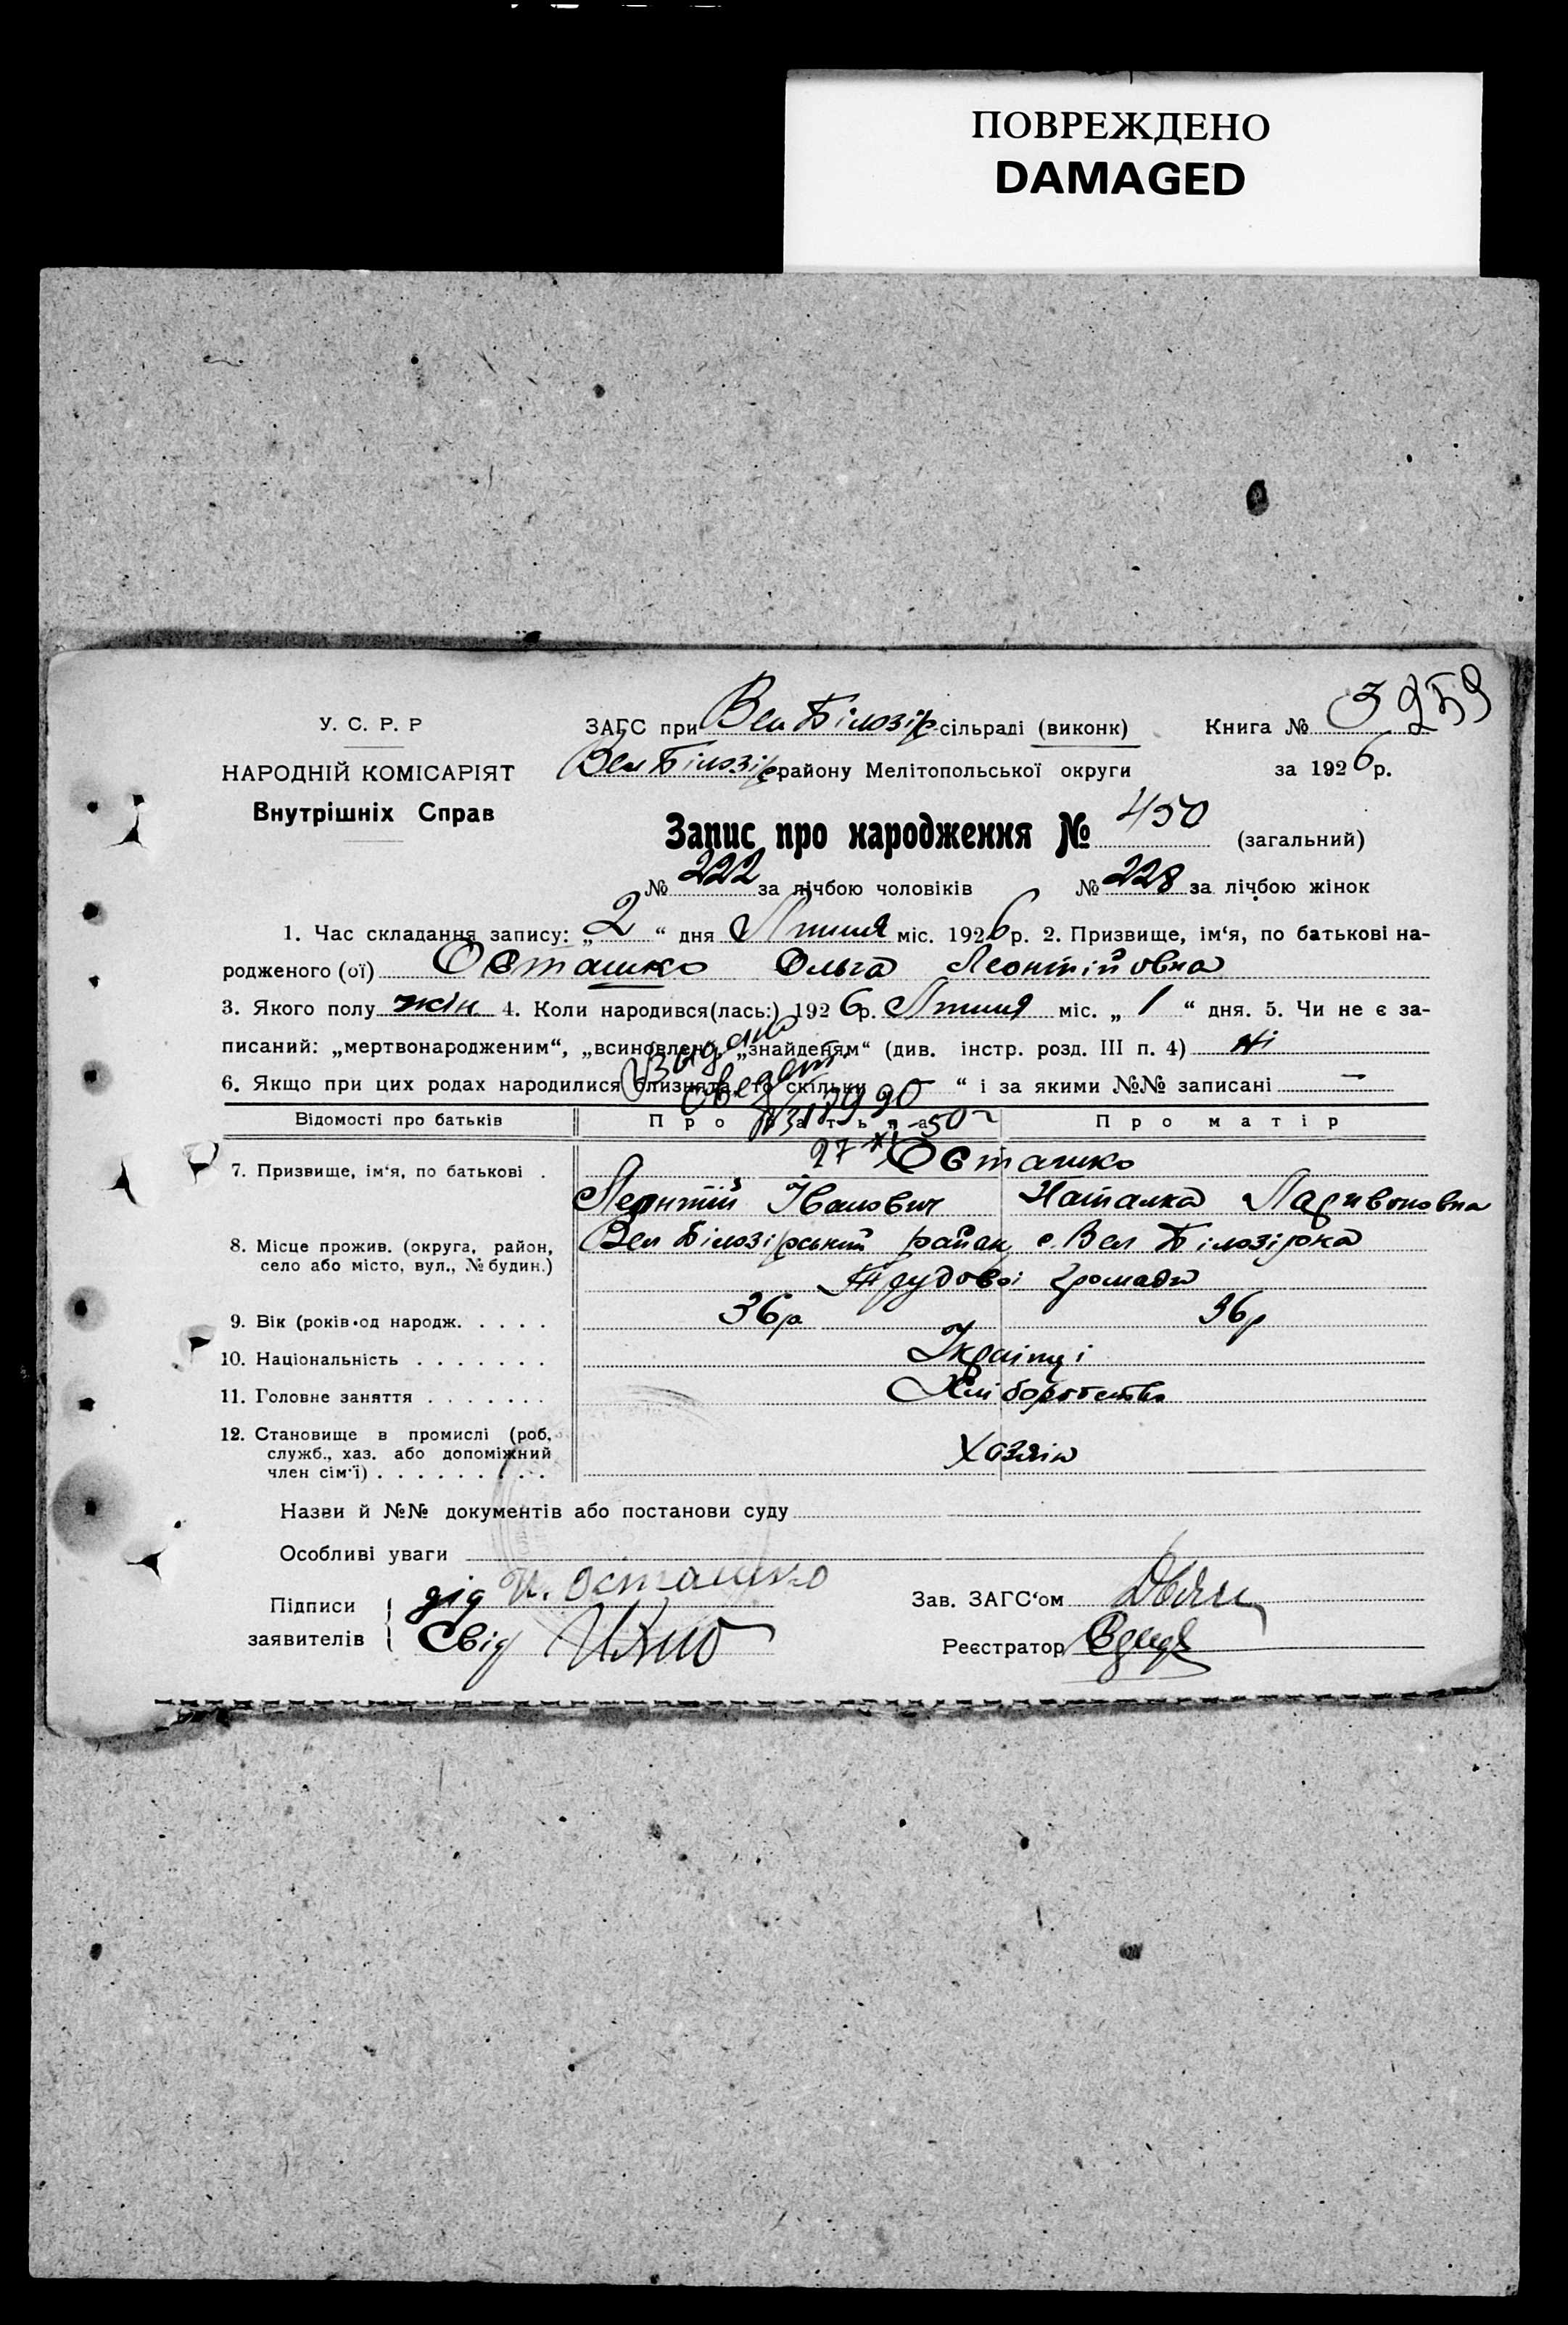 ПОВРЕЖДЕНО
DAMAGED
У. С. Р. Р
НАРОДНІЙ КОМІСАРІЯТ
Внутрішніх Справ
ЗАГС при Вел Білозір сільраді (виконк)
Книга № 3 259
Вел Білозір району Мелітопольської округи
за 1926 р.
Запис про народження № 450 (загальний)
№ 222 за лічбою чоловіків № 228 за лічбою жінок
1. Час складання запису: „2“ дня Липня міс. 1926 р. 2. Призвище, ім‘я, по батькові на-
родженого (ої) Осташко Ольга Леонтійовна
3. Якого полу жін. 4. Коли народився(лась:) 1926 р. Липня міс. „1“ дня. 5. Чи не є за-
писаний: „мертвонародженим“, „всиновлен“, „знайденям“ (див. інстр. розд. III п. 4) ні
6. Якщо при цих родах народилися близнята, то скільки “ і за якими №№ записані —
Відомості про батьків
Про батька
Про матір
27 XI 50
7. Призвище, ім‘я, по батькові .
Осташко
Леонтій Іванович
Наталка Ларивоновна
8. Місце прожив. (округа, район,
село або місто, вул., № будин.)
Вел Білозірський район с. Вел Білозірка
Трудової громади
9. Вік (років од народж. . . . .
36 р
36 р
10. Національність . . . . . . .
Українці
11. Головне заняття . . . . . . .
Хліборобство
12. Становище в промислі (роб.
служб., хаз. або допоміжний
член сім‘ї) . . . . . . . . .
Хозяїн
Назви й №№ документів або постанови суду
Особливі уваги
Підписи
заявителів
дід И. Осташко
Свід
Зав. ЗАГС‘ом
Реєстратор